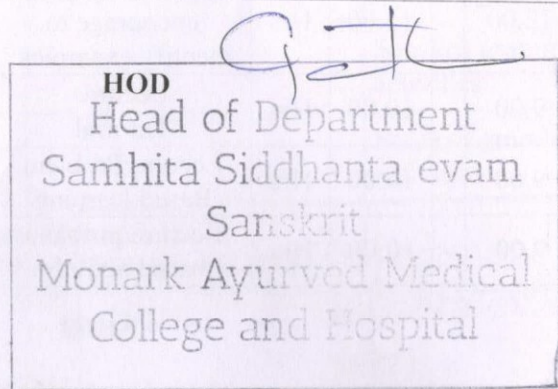 HOD
Head of Department
Samhita Siddhanta evam
Sanskrit
Monark Ayurvod Medical
College and Hospital